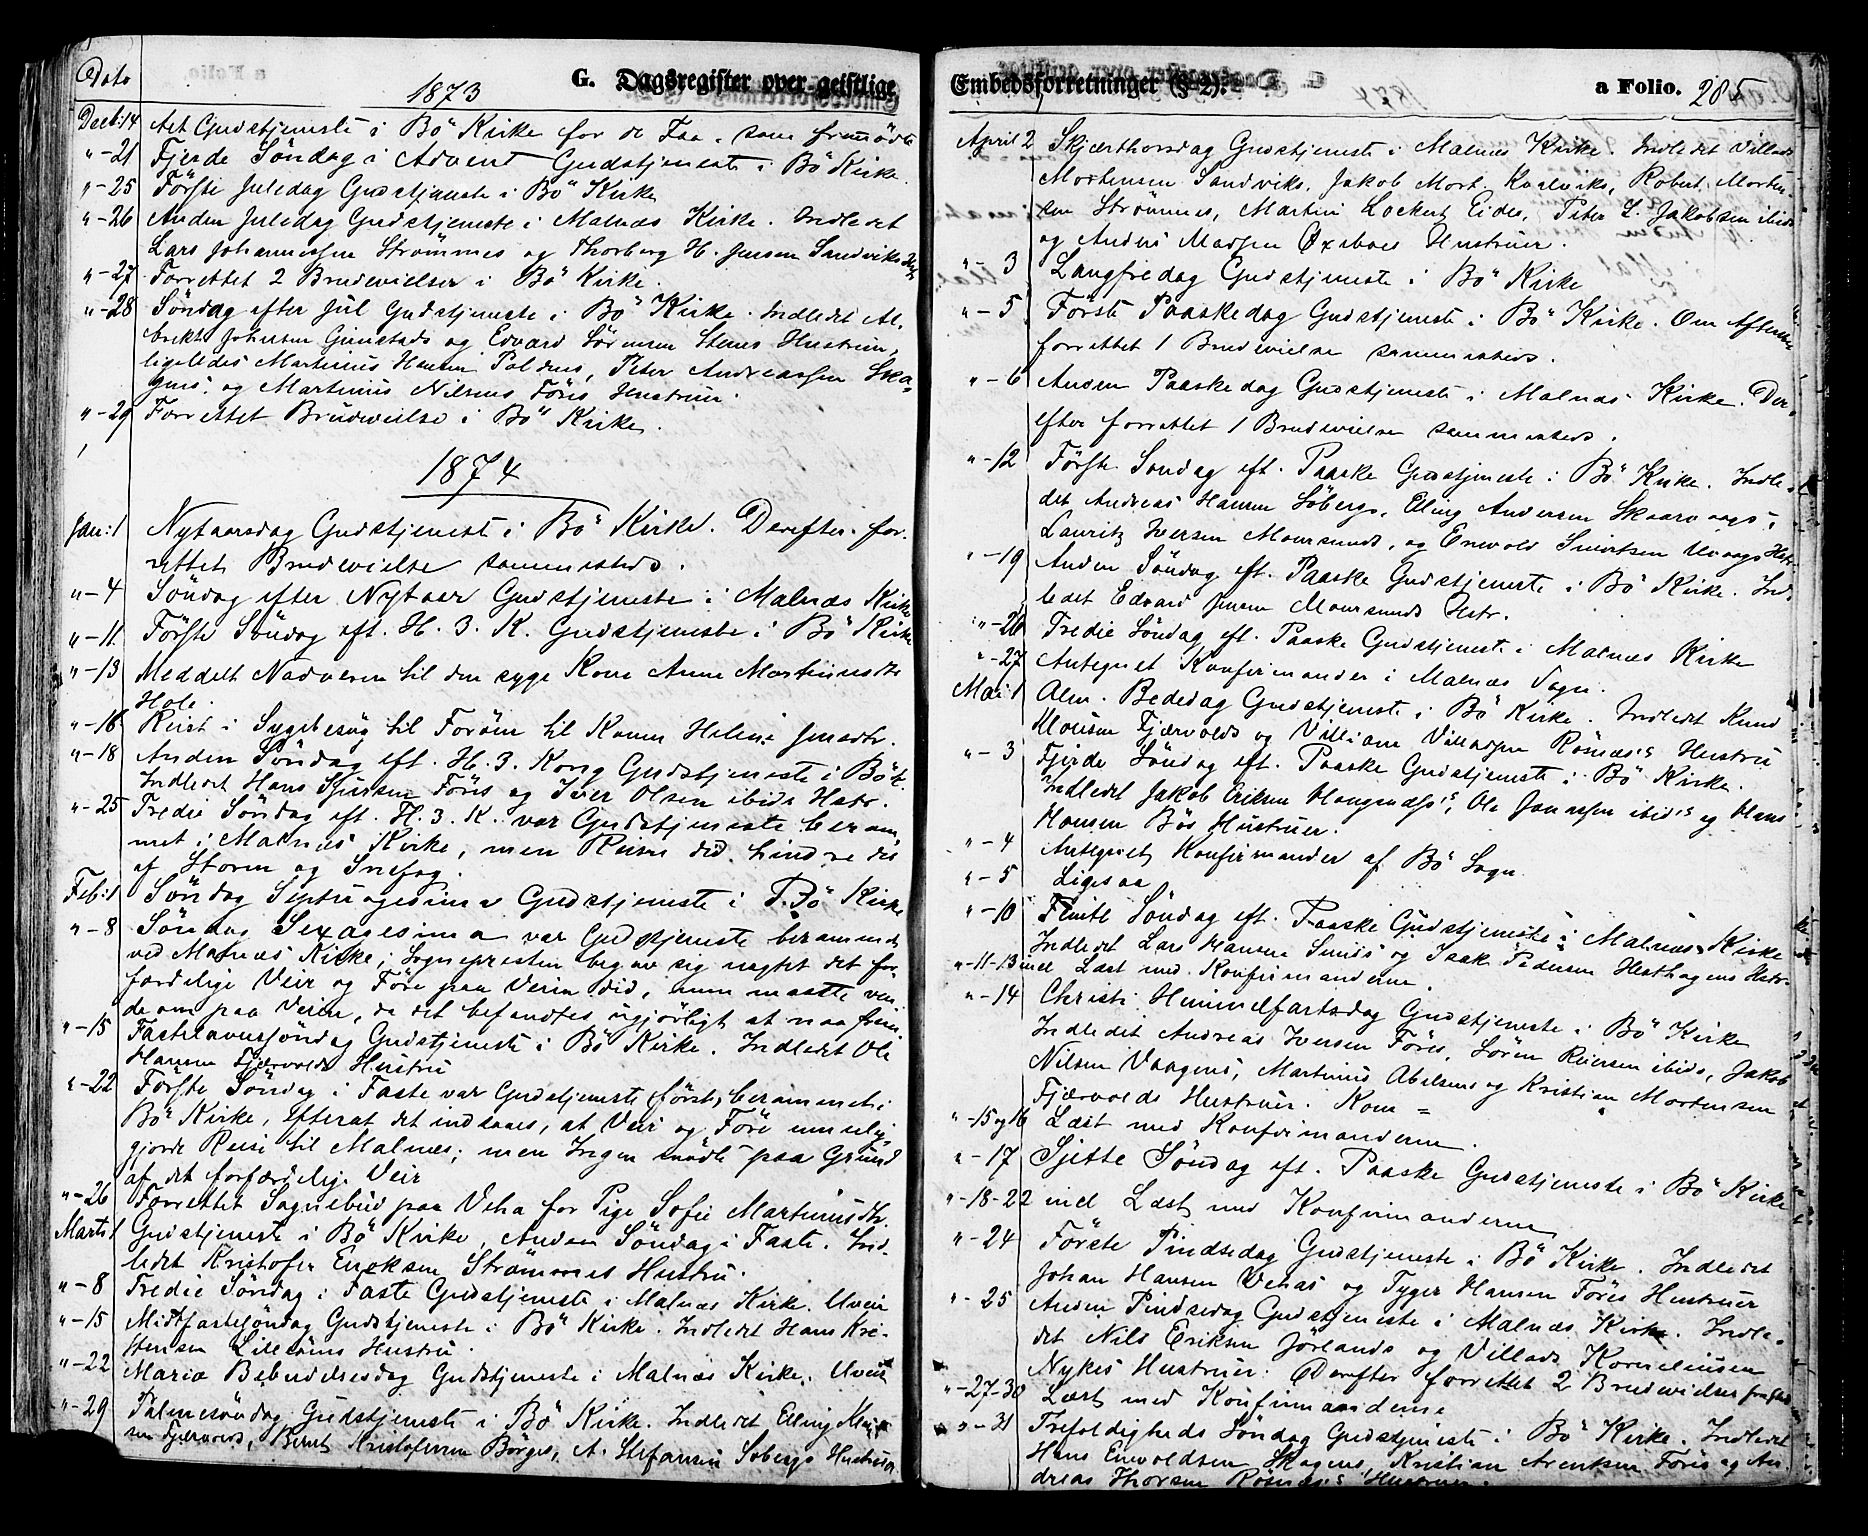 Dato
G. Dagsregister over geistlige
1873
Decb: 14 Gudstjeneste i Bö Kirke for de Faa, som fremmödte
"-21 Fjerde Söndag i Advent Gudstjeneste i Bö Kirke.
"-25 Förste Juledag Gudstjeneste i Bö Kirke
"-26 Anden Juledag Gudstjeneste i Malnæs Kirke. Indledet
Lars Johannessen Strömmes og Thorberg H. Jensen Sandviks
"-27 Forrettet 2 Brudevielser i Bö Kirke.
"-28 Söndag efter Jul Gudstjeneste i Bö Kirke. Indledet Al-
brikt Johnsen Guustads og Edvard Sörensen Steves Hustruer,
ligeledes Martinus Hansen , Peter Andreassen Ska-
gens og Martinus Nilsens Föres Hustruer.
"-29 Forrettet Brudevielse i Bö Kirke.
1874
Jan: 1 Nytaarsdag Gudstjeneste i Bö Kirke. Derefter for-
rettet Brudevielse sammesteds.
"-4 Söndag efter Nytaar Gudstjeneste i Malnæs Kirke
"-11 Förste Söndag eft. H. 3. K. Gudstjeneste i Bö Kirke
"-13 Meddelt Nadveren til den syge Kone Anne Martinusdtr
Hole.
"-16 Reist i Sygebesög til Foröen til Konen Helene Jensdtr.
"-18 Anden Söndag eft. H. 3. Kong Gudstjeneste i Bö K.
Indledet Hans Föres og Iver Olsen ibids Hstr.
"-25 Tredie Söndag eft. H. 3. K. var Gudstjeneste beram-
met i Malnæs Kirke, men Reisen did hindredes
af Storm og Snefog.
Feb: 1 Söndag Septuagesima Gudstjeneste i Bö Kirke
"-8 Söndag Sexagesima var Gudstjeneste berammet
ved Malnæs Kirke; Sognepresten begav sig uagtet det for-
færdelige Veir og Före paa Veien did, men maatte ven-
de om paa Veien, da det befandtes ugjörligt at naa frem
"-15 Fastelavnssöndag Gudstjeneste i Bö Kirke. Indledet Ole
Hansen Fjærvolds Hustru
"-22 Förste Söndag i Faste var Gudstjeneste först berammet i
Bö Kirke, efterat det indsaaes, at Veir og Före umulig-
gjorde Reise til Malnæs; men Ingen mödte paa Grund
af det forfærdelige Veir
"-26 Forrettet Sognebud paa Veha for Pige Sofie Martinusdtr.
Marts 1 Gudstjeneste i Bö Kirke, Anden Söndag i Faste. Ind-
ledet Kristofer Eriksen Strömmes Hustru.
"-8 Tredie Söndag i Faste Gudstjeneste i Malnæs Kirke. Uveir
"-15 Midtfastesöndag Gudstjeneste i Bö Kirke. Indledet Hans Kri-
stensen Hustru.
"-22 Mariæ Bebudelsesdag Gudstjeneste i Malnæs Kirke. Uveir
"-29 Palmesöndag Gudstjeneste i Bö Kirke. Indledet Elling
sen Fjærvolds, Bernt Kristofersen Börges, A. Stefansen Söbergs Hustruer
Embedsforretninger (§ 2).
a Folio. 285
April 2 Skjærthorsdag Gudstjeneste i Malnæs Kirke. Indledet Villads
Mortensen Sandviks, Jakob Mort. Kvalviks, Robert Morten-
sen Strömmes, Martin Lockert Eides, Peter L. Jakobsen ibids
og Anders Madsen Hustruer.
"-3 Langfredag Gudstjeneste i Bö Kirke
"-5 Förste Paaskedag Gudstjeneste i Bö Kirke. Om Aftenen
forrettet 1 Brudevielse sammesteds.
"-6 Anden Paaskedag Gudstjeneste i Malnæs Kirke. Der-
efter forrettet 1 Brudevielse sammesteds.
"-12 Förste Söndag eft. Paaske Gudstjeneste i Bö Kirke. Indle-
det Andreas Hansen Söbergs, Elling Andersen Skaarvaags,
Lauritz Iversen Moursunds, og Enevold Sivertsen Uvaags Hstr.
"-19 Anden Söndag eft. Paaske Gudstjeneste i Bö Kirke. Ind-
ledet Edvard Jensen Moursunds Hstr.
"-26 Tredie Söndag eft. Paaske Gudstjeneste i Malnæs Kirke
"-27 Antegnet Konfirmander i Malnæs Sogn.
Mai: 1 Alm. Bededag Gudstjeneste i Bö Kirke. Indledet Knud
Fjærvolds og Villiam Villadsen Rösnæs's Hustru
"-3 Fjerde Söndag eft. Paaske Gudstjeneste i Bö Kirke.
Indledet Jakob Eriksen , Ole ibid's og Hans
Hansen Bös Hustruer.
"-4 Antegnet Konfirmander af Bö Sogn
"-5 Ligesaa
"-10 Femte Söndag eft. Paaske Gudstjeneste i Malnæs Kirke
Indledet Lars Hansen og Isak Pedersen Hesthagens Hstr.
"-11-13 incl Læst med Konfirmanderne.
"-14 Christi Himmelfartsdag Gudstjeneste i Bö Kirke
Indledet Andreas Iversen Föres, Sören Reiersen ibids, Jakob
Nilsen Vaagens, Martinus Abelsens og Kristian Mortensen
Fjærvolds Hustruer.
"-15 og 16 Læst med Konfirmanderne.
"-17 Sjette Söndag eft. Paaske Gudstjeneste i Bö Kirke
"-18-22 incl Læst med Konfirmanderne
"-24 Förste Pindsedag Gudstjeneste i Bö Kirke. Indledet
Johan Hansen Vehas og Tyger Hansen Föres Hustruer
"-25 Anden Pindsedag Gudstjeneste i Malnæs Kirke. Indle-
det Nils Eriksen Jörlands og Villads Korneliusen
Nykes Hustruer. Derefter forrettet 2 Brudevielser
"-27-30 Læst med Konfirmanderne
"-31 Trefoldigheds Söndag Gudstjeneste i Bö Kirke. Indledet
Hans Enevoldsen Skagens, Kristian Arentsen Föres og An-
dreas Thorsen Rösnæs's Hustruer.